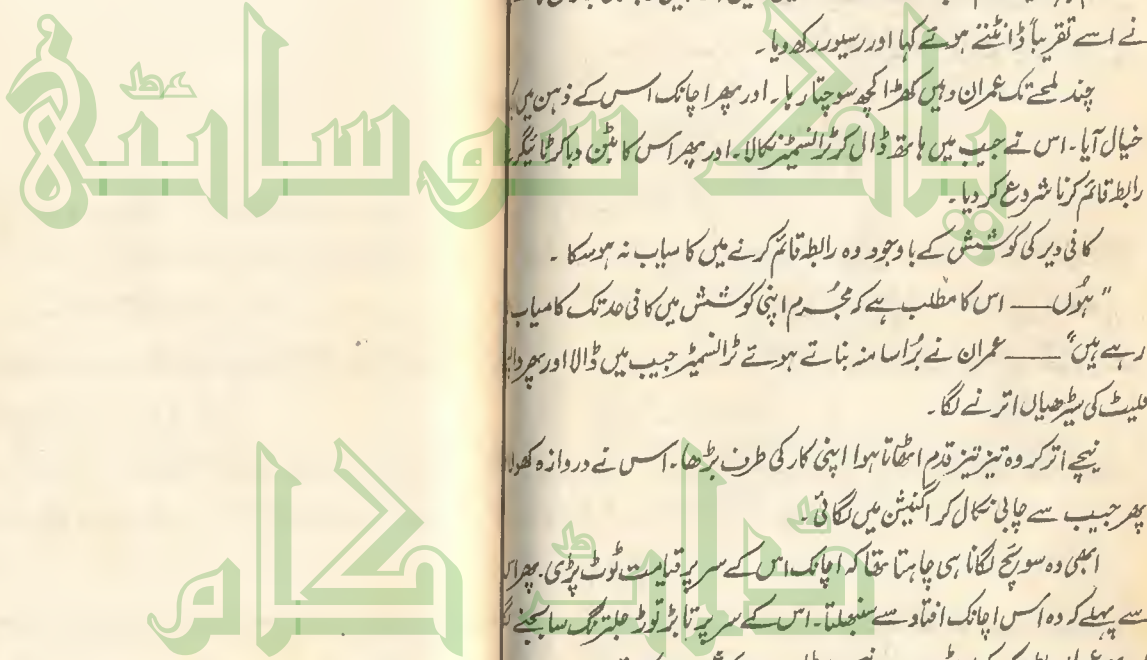 نے اسے تقریباً ڈانٹتے ہوئے کہا اور رسیور رکھ دیا ۔
چند لمحے تک عمران وہیں کھڑا کچھ سوچتا رہا ۔ اور پھر اچانک اس کے ذہن میں
خیال آیا ۔ اس نے جیب میں ہاتھ ڈال کر ٹرانسمیٹر نکالا ۔ اور پھر اس کا بٹن دبا کر ٹائیگر
رابطہ قائم کرنا شروع کر دیا ۔
کافی دیر کی کوشش کے باوجود وہ رابطہ قائم کرنے میں کامیاب نہ ہو سکا ۔
" ہُوں —— اس کا مطلب ہے کہ مجرم اپنی کوشش میں کافی حد تک کامیاب
رہے ہیں" —— عمران نے بُرا سا منہ بناتے ہوئے ٹرانسمیٹر جیب میں ڈالا اور پھر
فلیٹ کی سیڑھیاں اترنے لگا ۔
نیچے اتر کر وہ تیز تیز قدم اٹھاتا ہوا اپنی کار کی طرف بڑھا ۔ اس نے دروازہ کھولا
پھر جیب سے چابی نکال کر اگنیشن میں لگائی ۔
ابھی وہ سوئچ لگانا ہی چاہتا تھا کہ اچانک اس کے سر پر قیامت ٹوٹ پڑی ۔ پھر
سے پہلے کہ وہ اس اچانک افتاد سے سنبھلتا ۔ اس کے سر پر تابڑ توڑ جلترنگ سا بجنے
پاک سوسائٹی
ڈاٹ کام